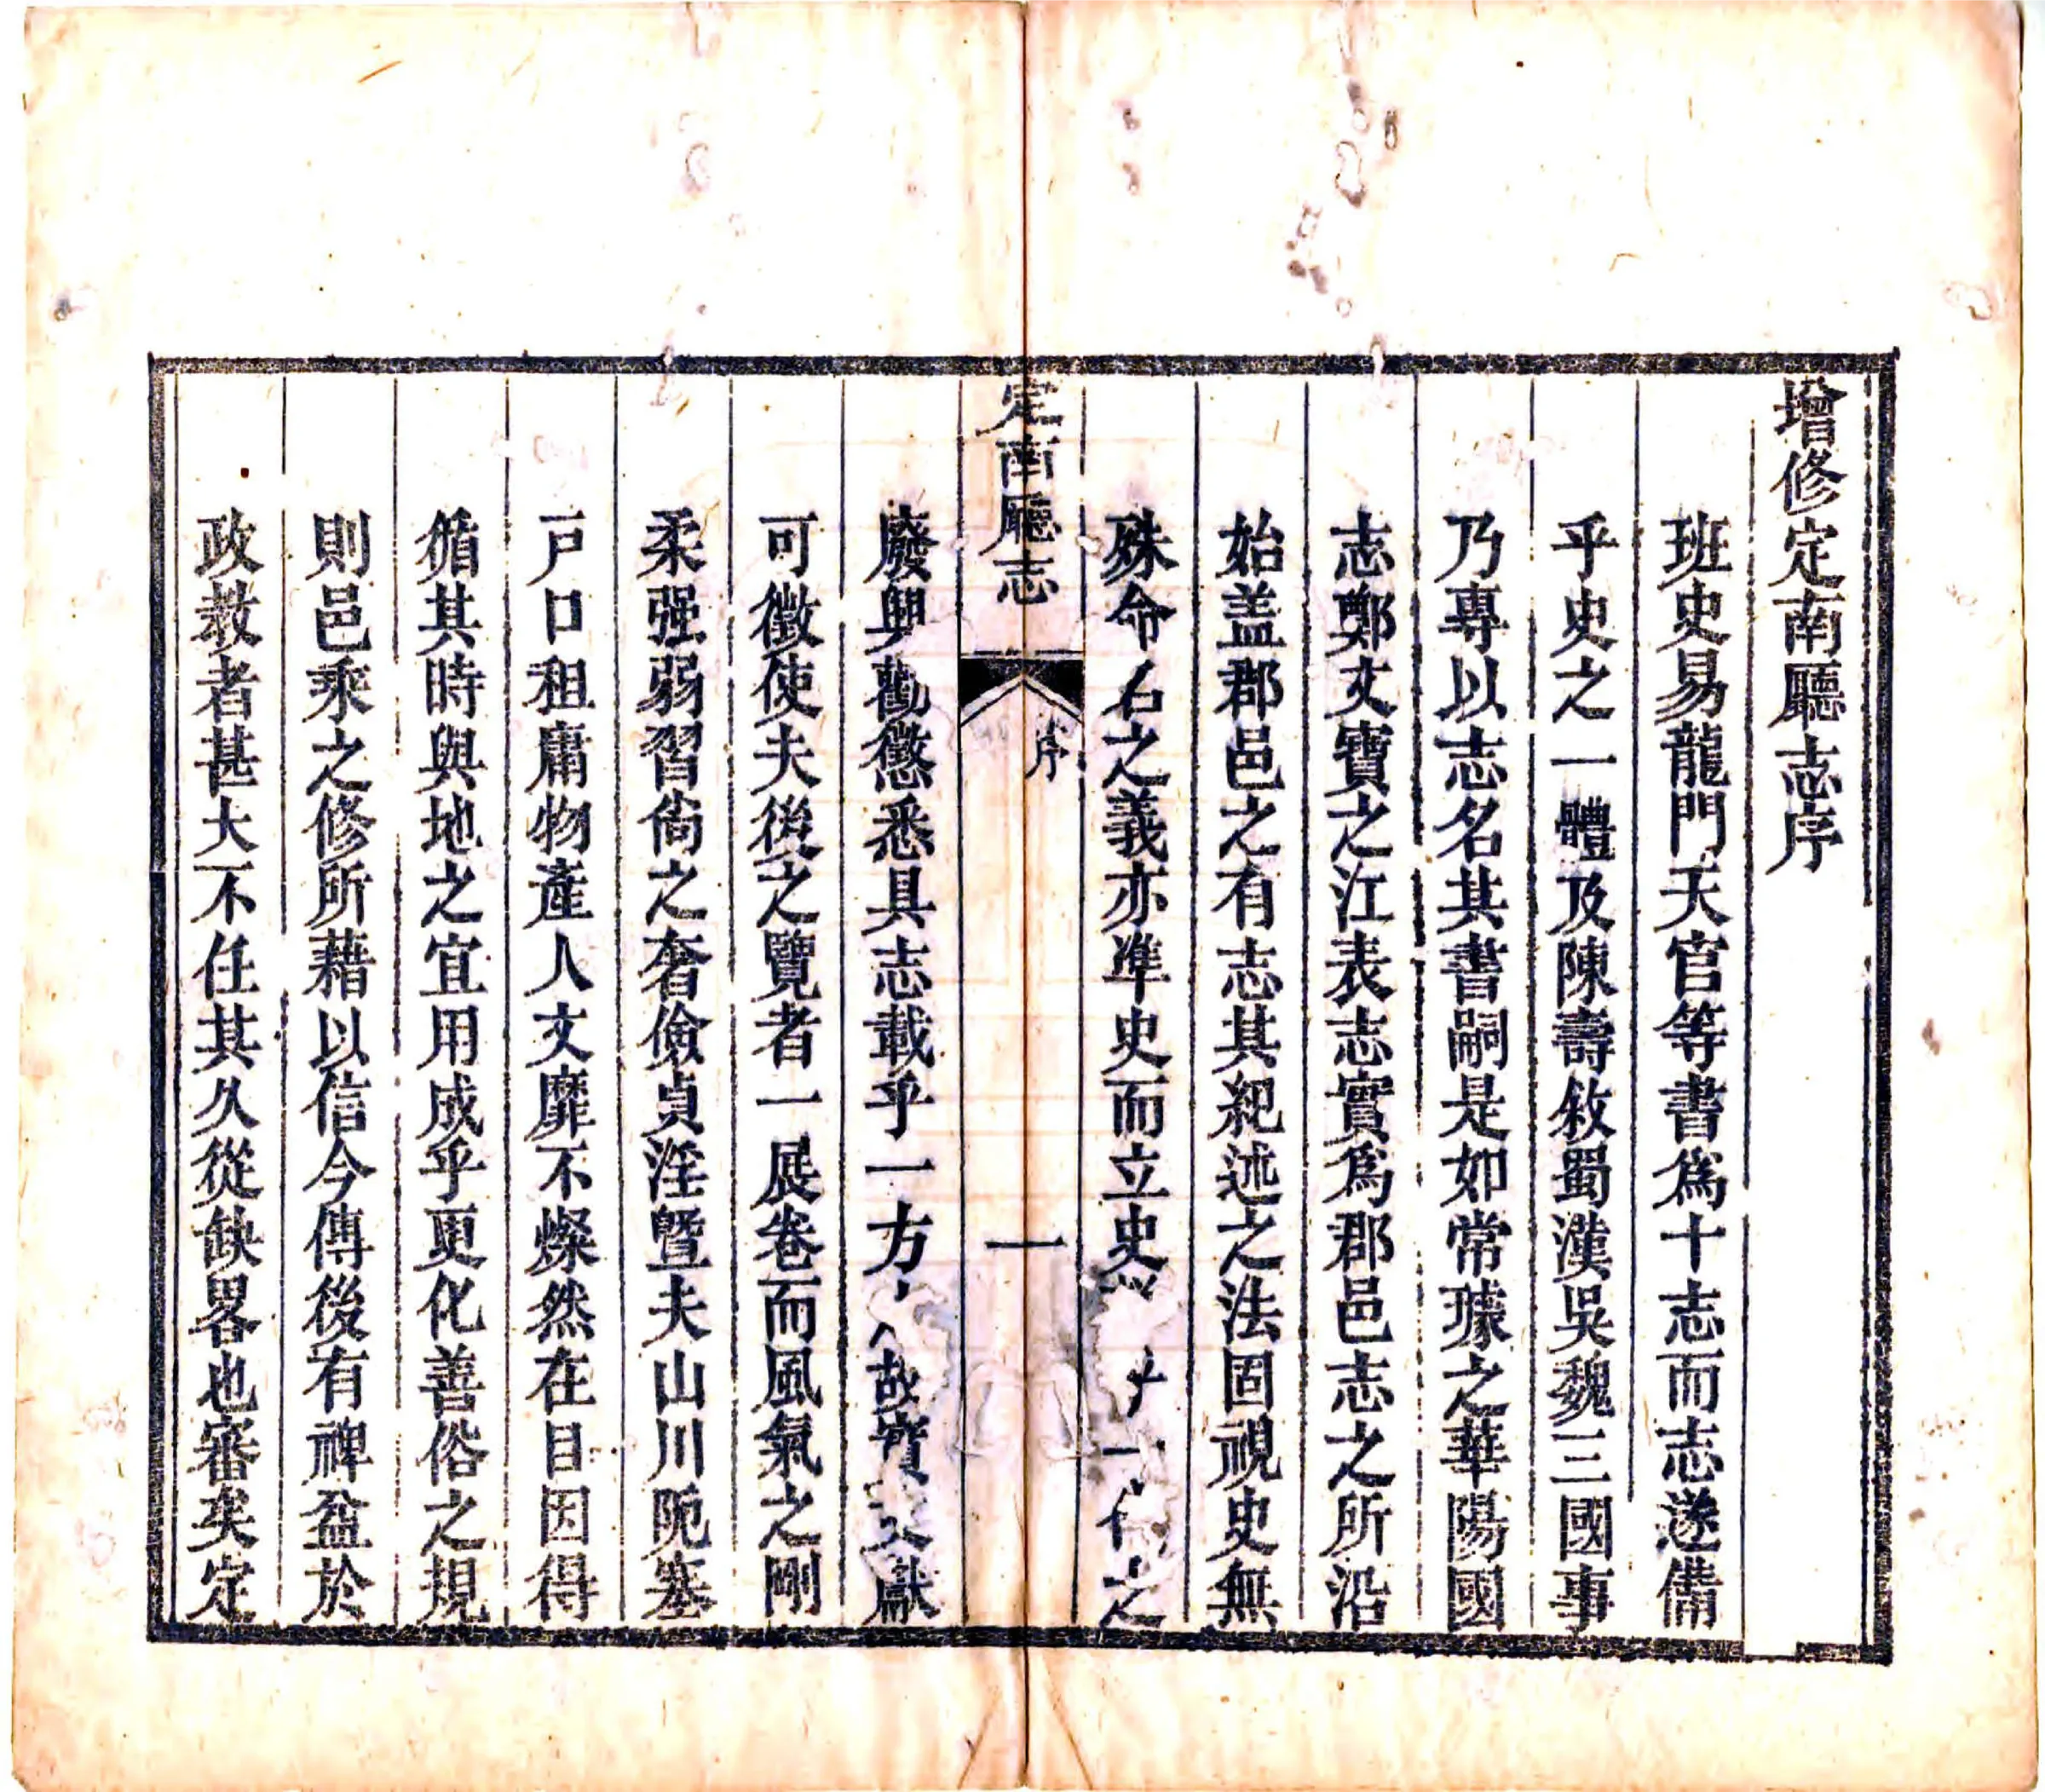 增修定南廳志序
班史易龍門天官等書爲十志而志遂備
乎史之一體及陳壽敘蜀漢吳魏三國事
乃專以志名其書嗣是如常璩之華陽國
志鄭文寶之江表志實爲郡邑志之所沿
始盖郡邑之有志其紀述之法固視史無
殊命名之義亦準史而立史以一代之
定南廳志
序
一
廢興勸懲悉具志載乎一方故實文獻
可徵使夫後之覽者一展卷而風氣之剛
柔强弱習尙之奢儉貞淫曁夫山川阨塞
戸口租庸物產人文靡不燦然在目因得
循其時與地之宜用成乎更化善俗之規
則邑乘之修所藉以信今傳後有裨益於
政教者甚大不任其久從缺畧也審矣定